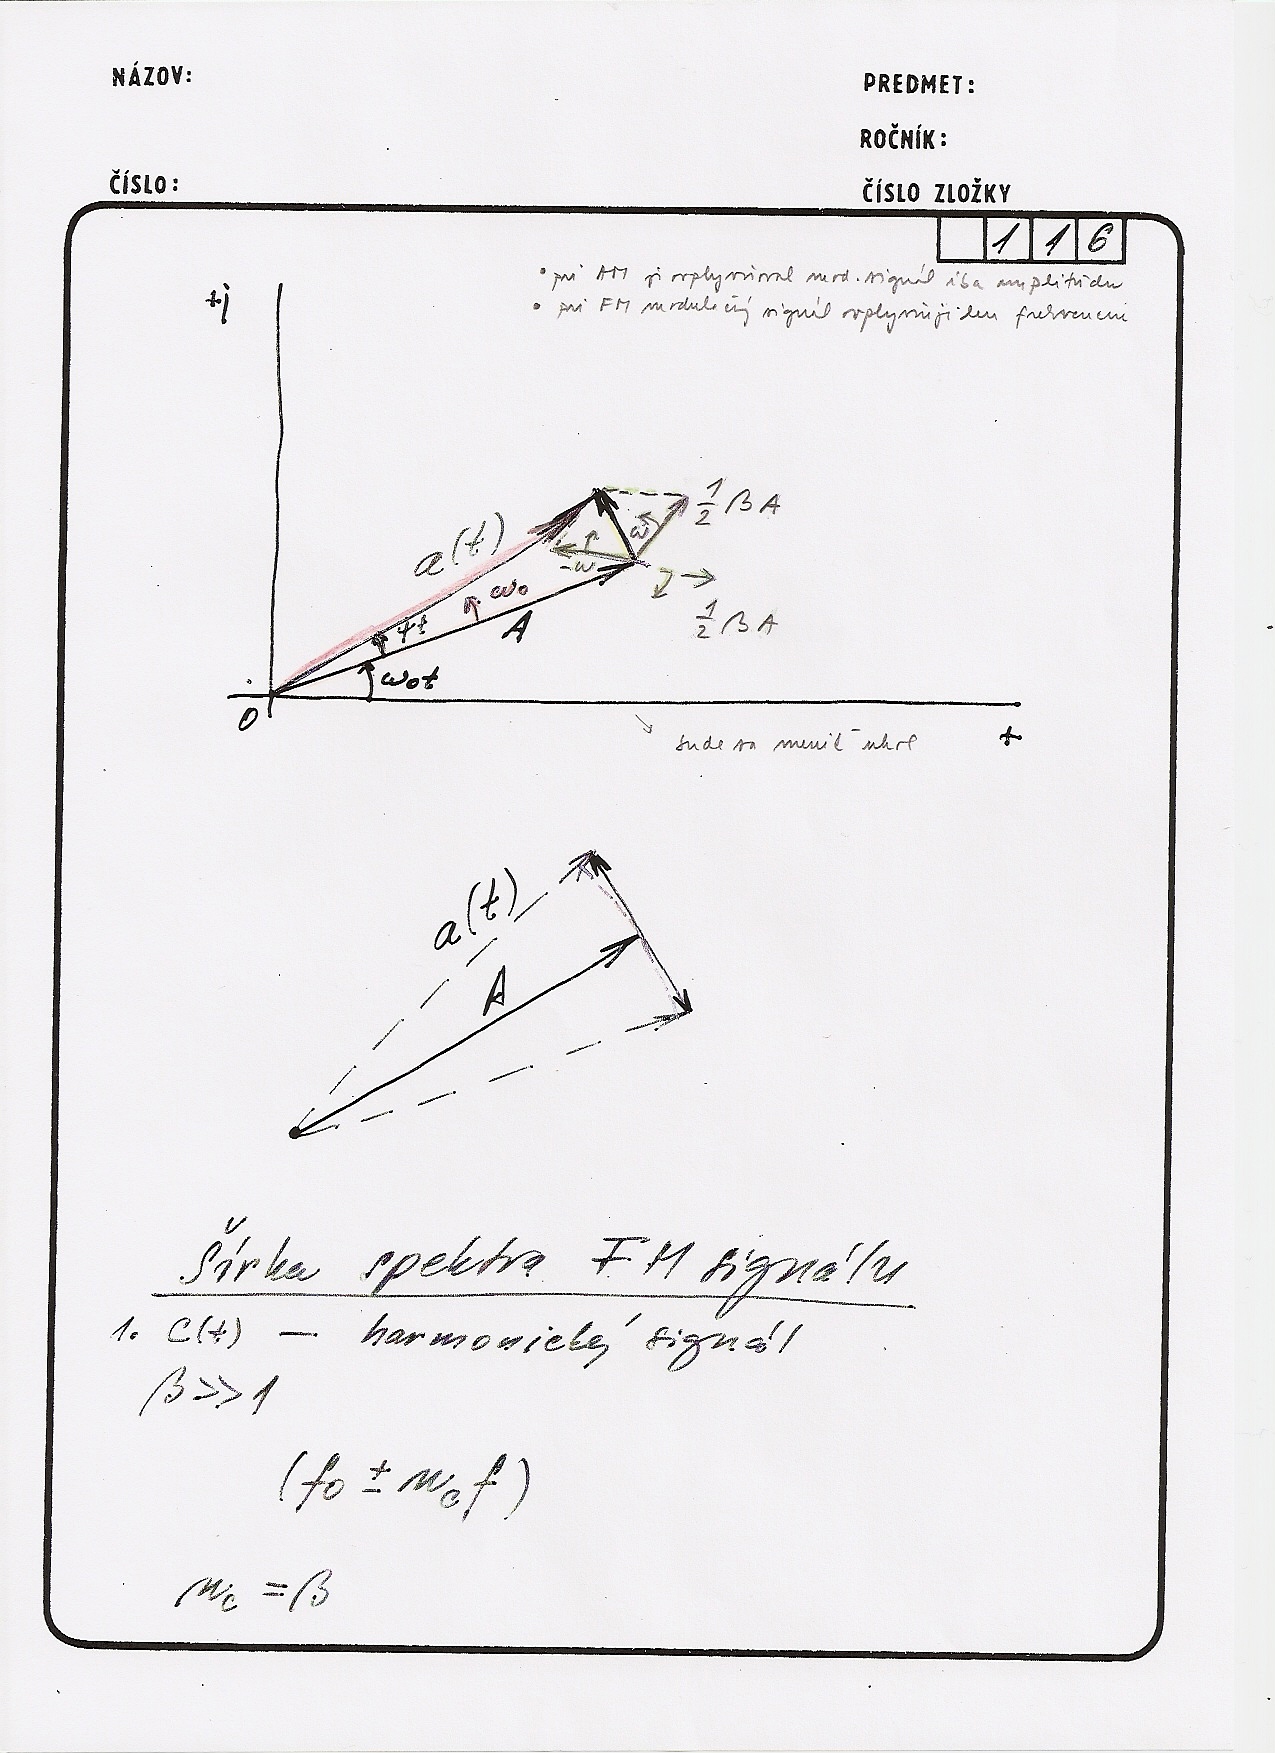 NÁZOV:
PREDMET:
ROČNÍK:
ČÍSLO:
ČÍSLO ZLOŽKY
1 1 6
• pri AM ovplyvňoval mod. signál iba amplitúdu
• pri FM modulačný signál ovplyvňuje len frekvenciu
+j
a(t)
1/2 β A
ω
-ω
ω₀
ψt
A
1/2 β A
ω₀t
0
+
bude sa meniť uhol
a(t)
A
Šírka spektra FM signálu
1. c(t) — harmonický signál
β >> 1
(f₀ ± n_c f)
n_c = β